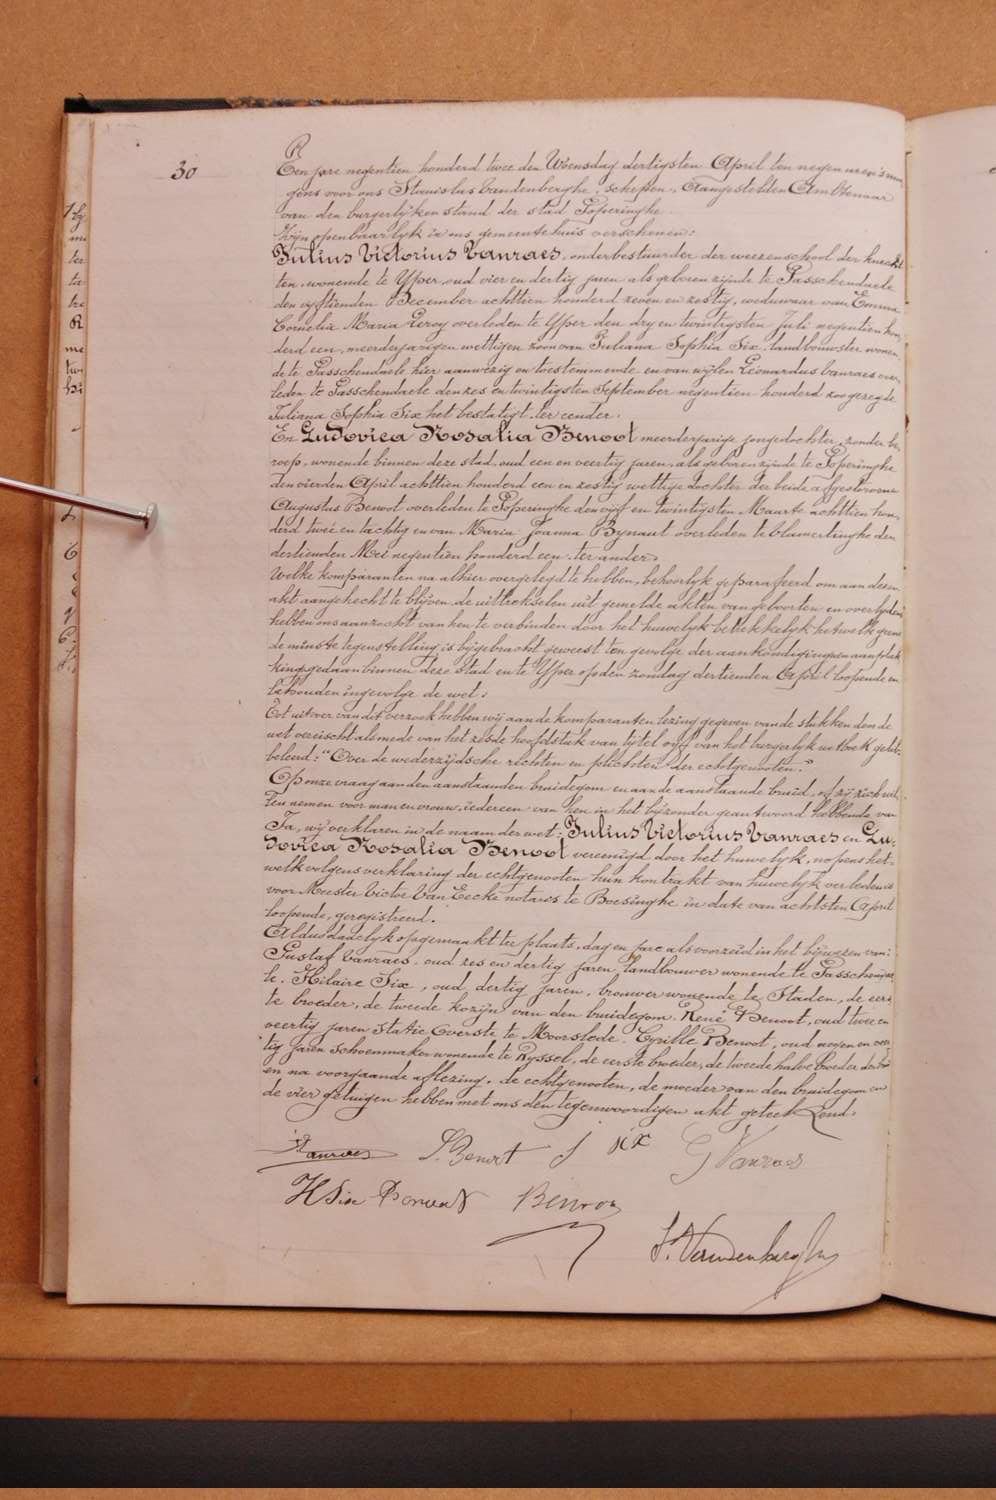 30
R
Een jare negentien honderd twee den Woensdag dertigsten April ten negen uren 's mor,
gens voor ons Stanislus Vandenberghe, schepen, Aangestelden Ambtenaar
van den burgerlyken stand der stad Poperinghe.
Zijn openbaarlyk in ons gemeentehuis verschenen:
Julius Victorius Vanraes, onderbestuurder der weezenschool der knech
ten, wonende te Yper, oud vier en dertig jaren als geboren zijnde te Passchendaele
den vyftienden December achttien honderd zeven en zestig, weduwaar van Emma
Cornelia Maria Leroy overleden te Yper den dry en twintigsten Juli negentien hon,
derd een, meerderjarigen wettigen zoon van Juliana Sophia Six, landbouwster wonen,
de te Passchendaele hier aanwezig en toestemmende en van wijlen Leonardus Vanraes over,
leden te Passchendaele den zes en twintigsten September negentien honderd zoo gezegde
Juliana Sophia Six het bestatigt ter eender.
En Ludovica Rosalia Benoot meerderjarige jongedochter, zonder be,
roep, wonende binnen deze stad, oud een en veertig jaren, als geboren zijnde te Poperinghe
den vierden April achttien honderd een en zestig wettige dochter der beide afgestorvene
Augustus Benoot overleden te Poperinghe den vijf en twintigsten Maarte achttien hon,
derd twee en tachtig en van Maria Joanna Bynaut overleden te Vlamertinghe den
dertienden Mei negentien honderd een ter ander.
Welke komparanten na alhier overgelegd te hebben, behoorlyk geparafeerd om aan dezen
akt aangehecht te blijven de uittrekselen uit gemelde akten van geboorten en overlyden
hebben ons aanzocht van hen te verbinden door het huwelyk betrekkelyk hetwelk geene
de minste tegenstelling is bijgebracht geweest ten gevolge der aankondigingen en aanplak
kingen gedaan binnen deze stad en te Yper op den zondag dertienden April loopende en
behouden ingevolge de wet.
Tot uitvoer van dit verzoek hebben wij aan de komparanten lezing gegeven van de stukken door de
wet vereischt alsmede van het zesde hoofdstuk van tytel vyf van het burgerlyk wetboek getit,
beleerd: "Over de wederzijdsche rechten en plichten der echtgenooten."
Op onze vraag aan den aanstaanden bruidegom en aan de aanstaande bruid, of zij zich wil,
len nemen voor man en vrouw, iedereen van hen in het bijzonder geantwoord hebbende van
Ja, wij verklaren in de naam der wet: Julius Victorius Vanraes en Lu,
dovica Rosalia Benoot vereenigd door het huwelyk, nopens het
welk volgens verklaring der echtgenooten hun kontrakt van huwelyk verleden is
voor Meester Victor Van Eecke notaris te Boesinghe in date van achtsten April
loopende, geregistreerd.
Aldus dadelyk opgemaakt ter plaats, dag en jare als voorzeid in het bijwezen van:
Gustaf Vanraes, oud zes en dertig jaren, landbouwer wonende te Passchendae
le, Hilaire Six, oud dertig jaren, brouwer wonende te Staden, de eers
te broeder, de tweede kozijn van den bruidegom. René Benoot, oud twee en
veertig jaren Statie Overste te Moorslede. Cyrille Benoot, oud negen en veer,
tig jaren schoenmaker wonende te Ryssel, de eerste broeder, de tweede halve broeder der bruid
en na voorgaande aflezing, de echtgenooten, de moeder van den bruidegom en
de vier getuigen hebben met ons den tegenwoordigen akt geteekend.
Vanraes L. Benoot J Six G Vanraes
H Six Benoot Benoot
S. Vandenberghe